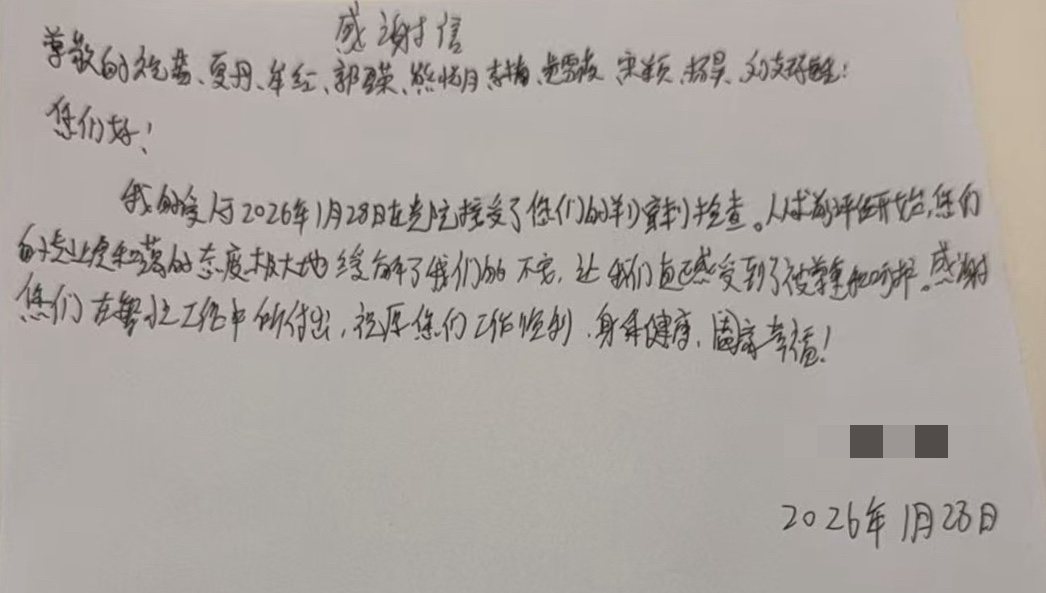 感谢信
尊敬的 夏丹、牟红、郭 荣、熊 月 宋颖、杨昊、刘
您们好！
我的爱人于2026年1月28日在贵院接受了您们的羊水穿刺检查。从术前评估开始，您们
的专业度和 的态度极大地缓解了我们的不安，让我们真正感受到了被尊重和呵护。感谢
您们在繁忙工作中所付出，祝愿您们工作顺利，身体健康，阖家幸福！
2026年1月28日